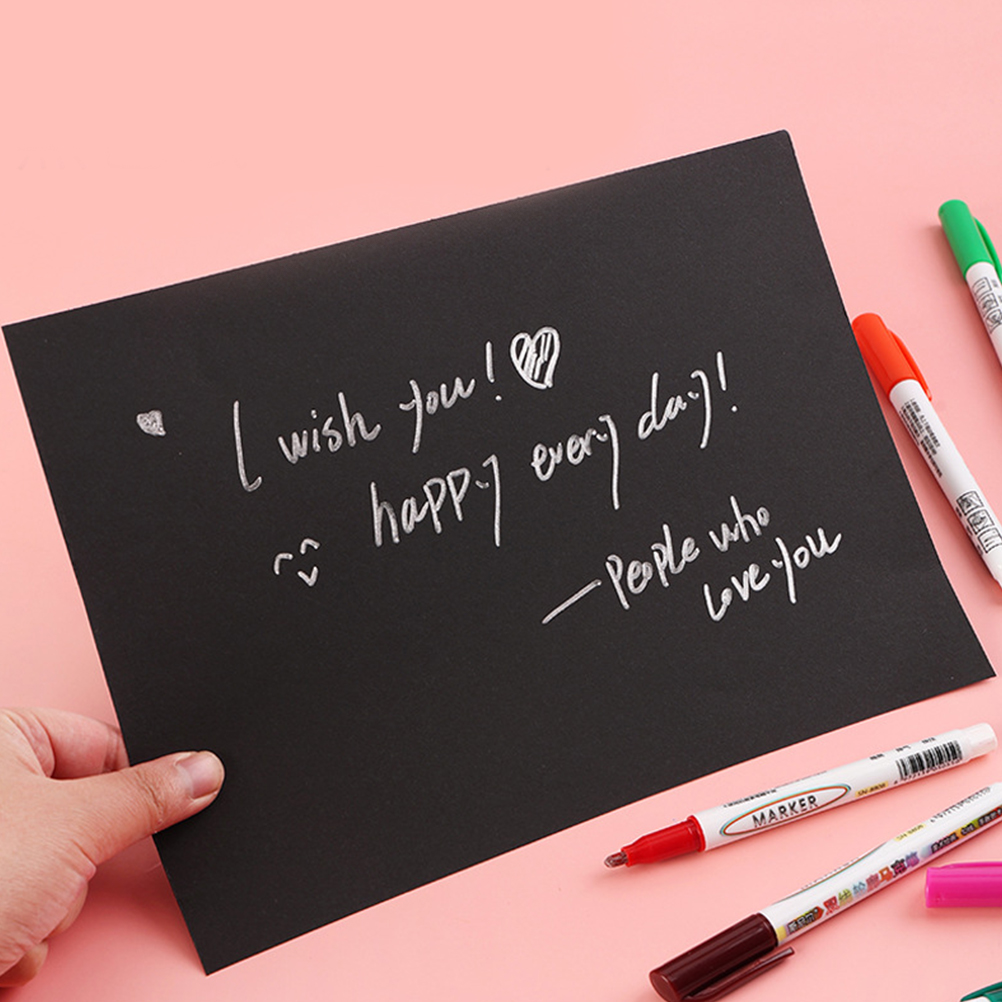 I wish you!
happy every day!
—People who
love you
MARKER